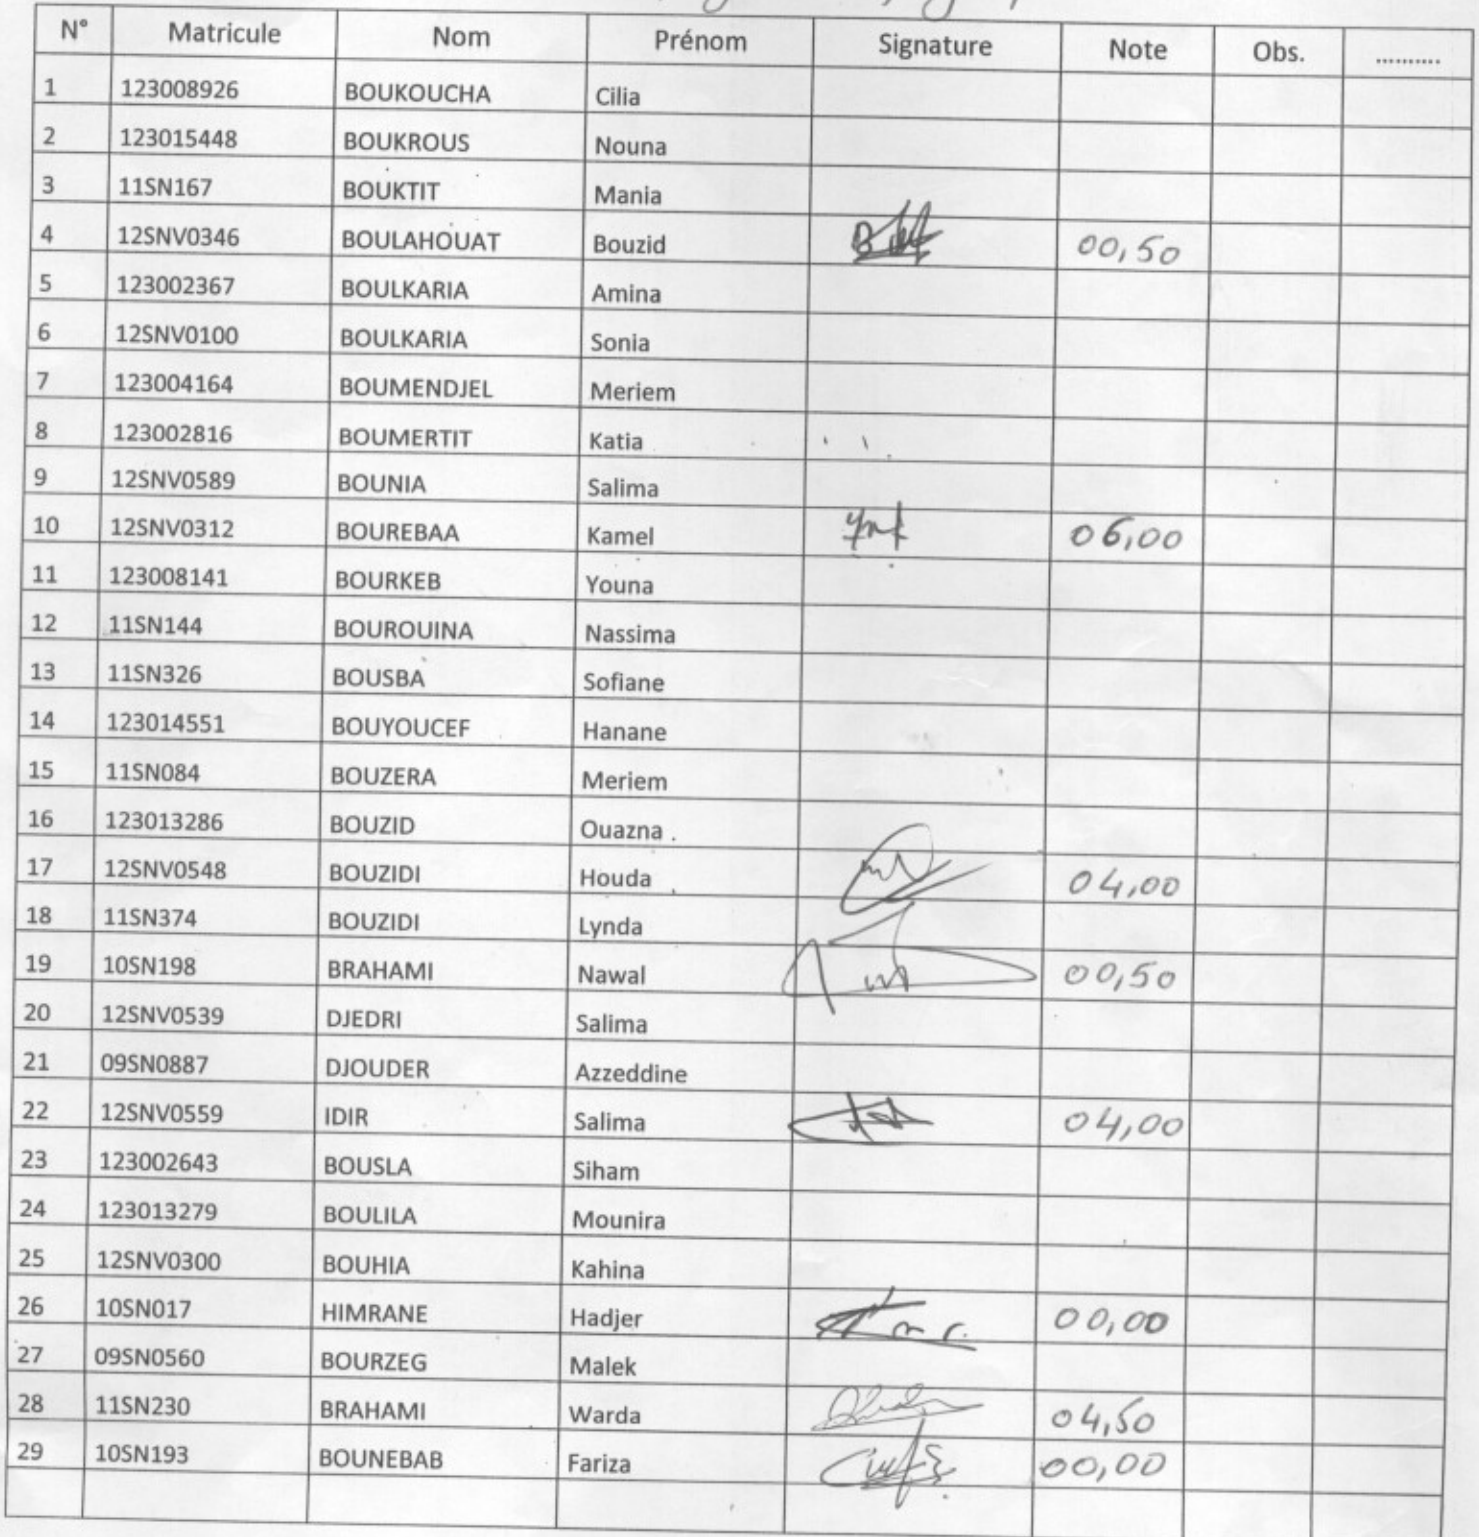 N° Matricule Nom Prénom Signature Note Obs. ..........
1 123008926 BOUKOUCHA Cilia
2 123015448 BOUKROUS Nouna
3 11SN167 BOUKTIT Mania
4 12SNV0346 BOULAHOUAT Bouzid 00,50
5 123002367 BOULKARIA Amina
6 12SNV0100 BOULKARIA Sonia
7 123004164 BOUMENDJEL Meriem
8 123002816 BOUMERTIT Katia
9 12SNV0589 BOUNIA Salima
10 12SNV0312 BOUREBAA Kamel 06,00
11 123008141 BOURKEB Youna
12 11SN144 BOUROUINA Nassima
13 11SN326 BOUSBA Sofiane
14 123014551 BOUYOUCEF Hanane
15 11SN084 BOUZERA Meriem
16 123013286 BOUZID Ouazna
17 12SNV0548 BOUZIDI Houda 04,00
18 11SN374 BOUZIDI Lynda
19 10SN198 BRAHAMI Nawal 00,50
20 12SNV0539 DJEDRI Salima
21 09SN0887 DJOUDER Azzeddine
22 12SNV0559 IDIR Salima 04,00
23 123002643 BOUSLA Siham
24 123013279 BOULILA Mounira
25 12SNV0300 BOUHIA Kahina
26 10SN017 HIMRANE Hadjer 00,00
27 09SN0560 BOURZEG Malek
28 11SN230 BRAHAMI Warda 04,50
29 10SN193 BOUNEBAB Fariza 00,00